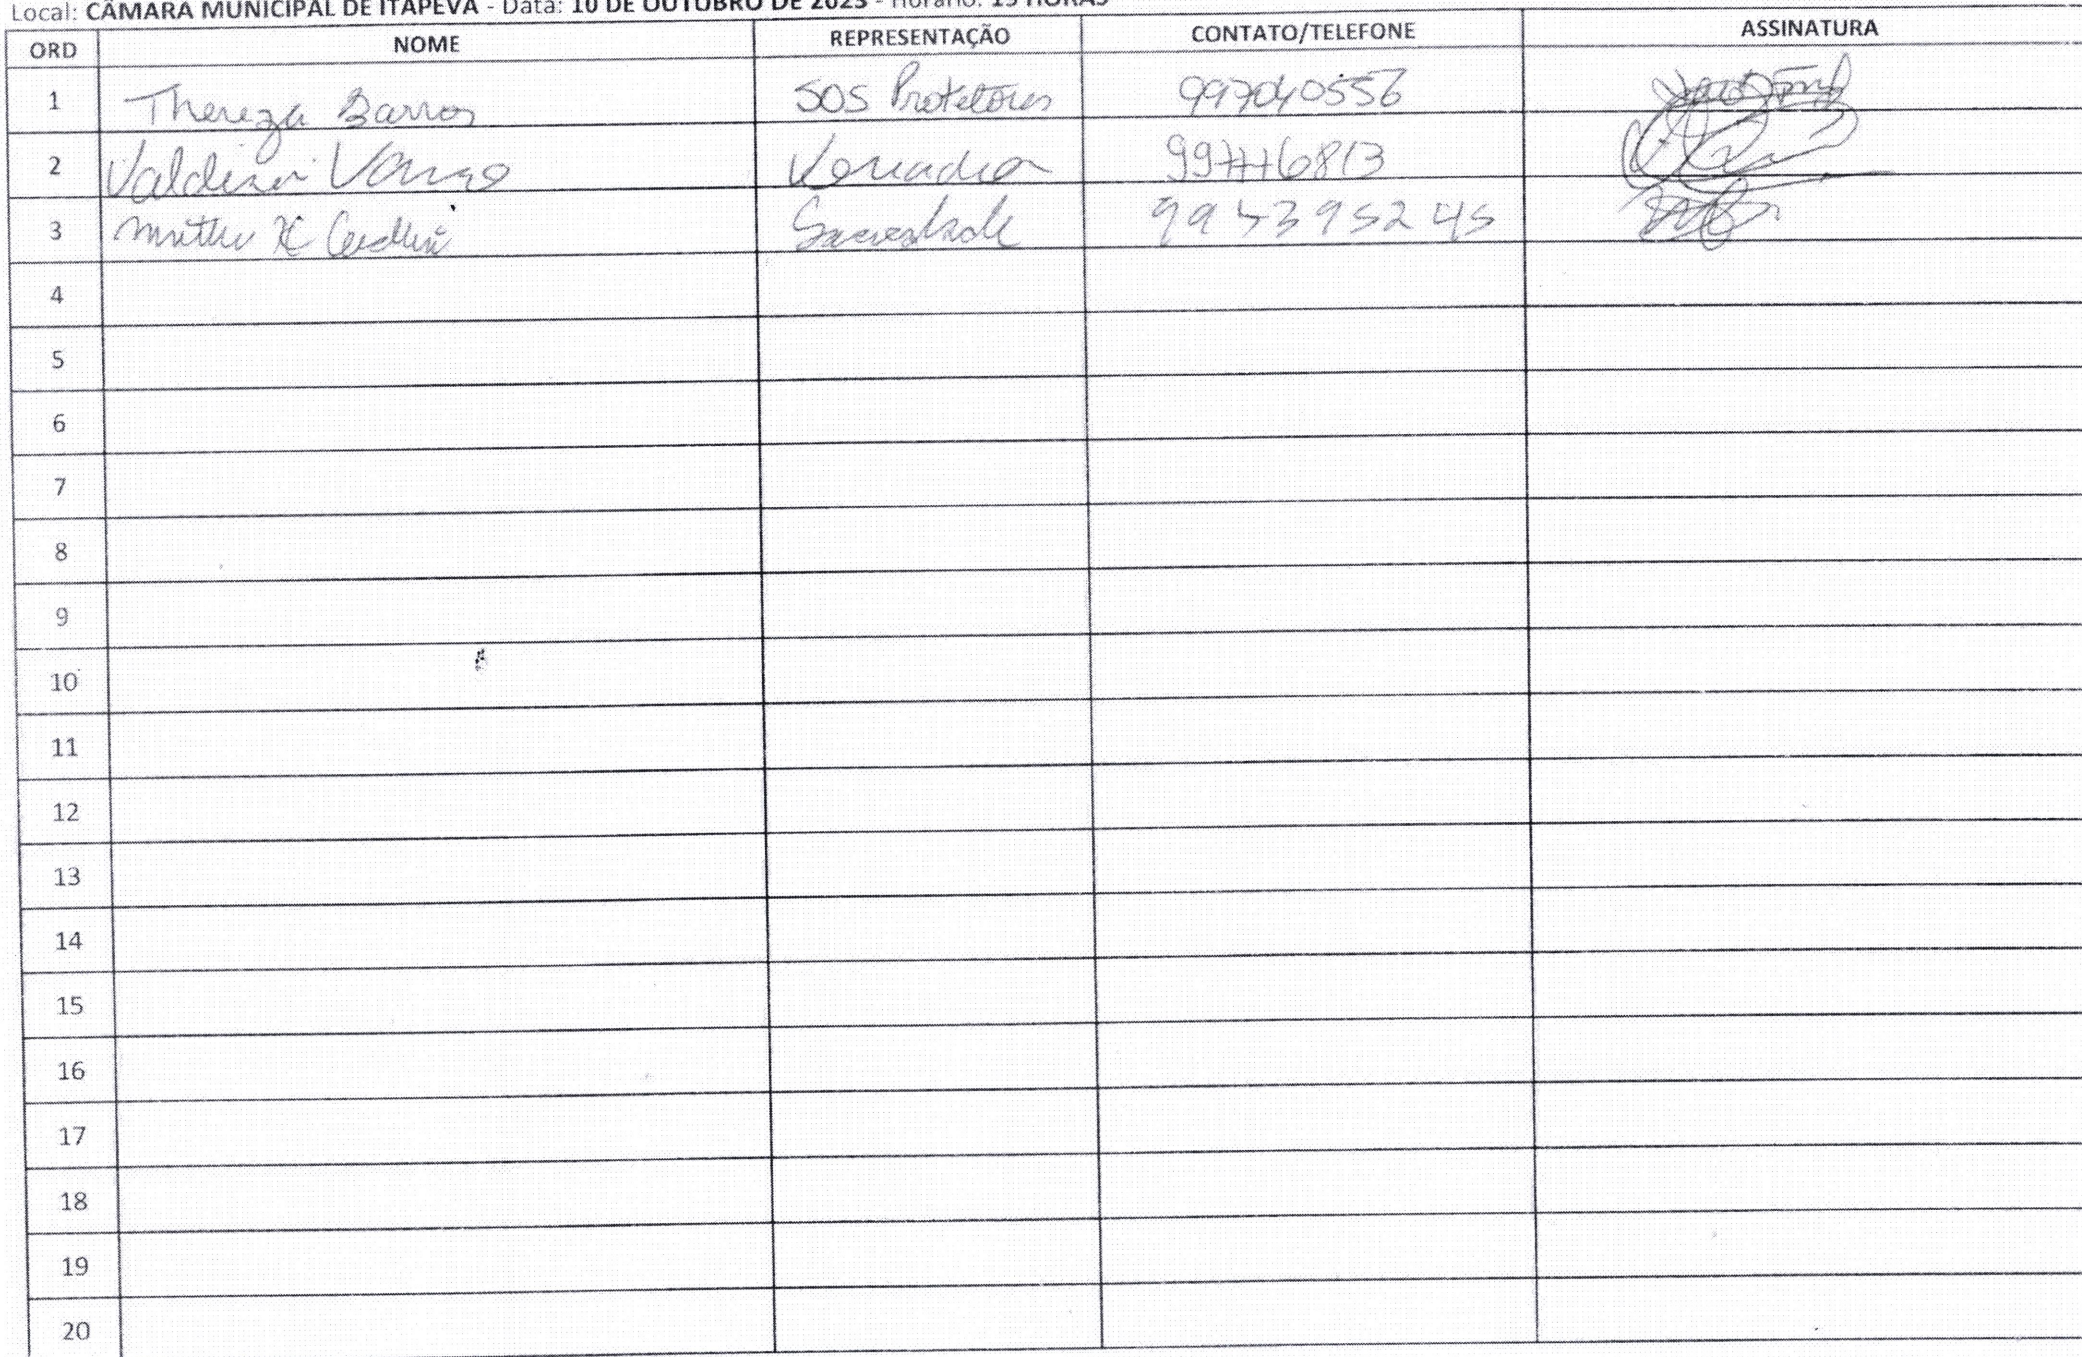 Local: CÂMARA MUNICIPAL DE ITAPEVA - Data: 10 DE OUTUBRO DE 2023 - Horário: 15 HORAS
ORD NOME REPRESENTAÇÃO CONTATO/TELEFONE ASSINATURA
1 Thereza Barros SOS Protetores 997040556
2 Vereador 997716813
3 Sociedade
4
5
6
7
8
9
10
11
12
13
14
15
16
17
18
19
20